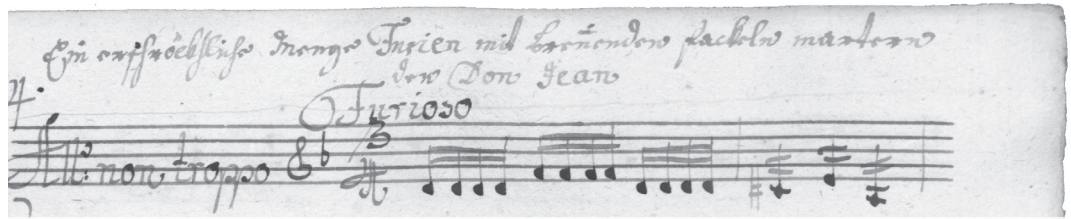 Ein erschröckhliche Menge Furien mit brenenden fackeln martern
den Don Jean
4.
Furioso
All: non troppo 3 4